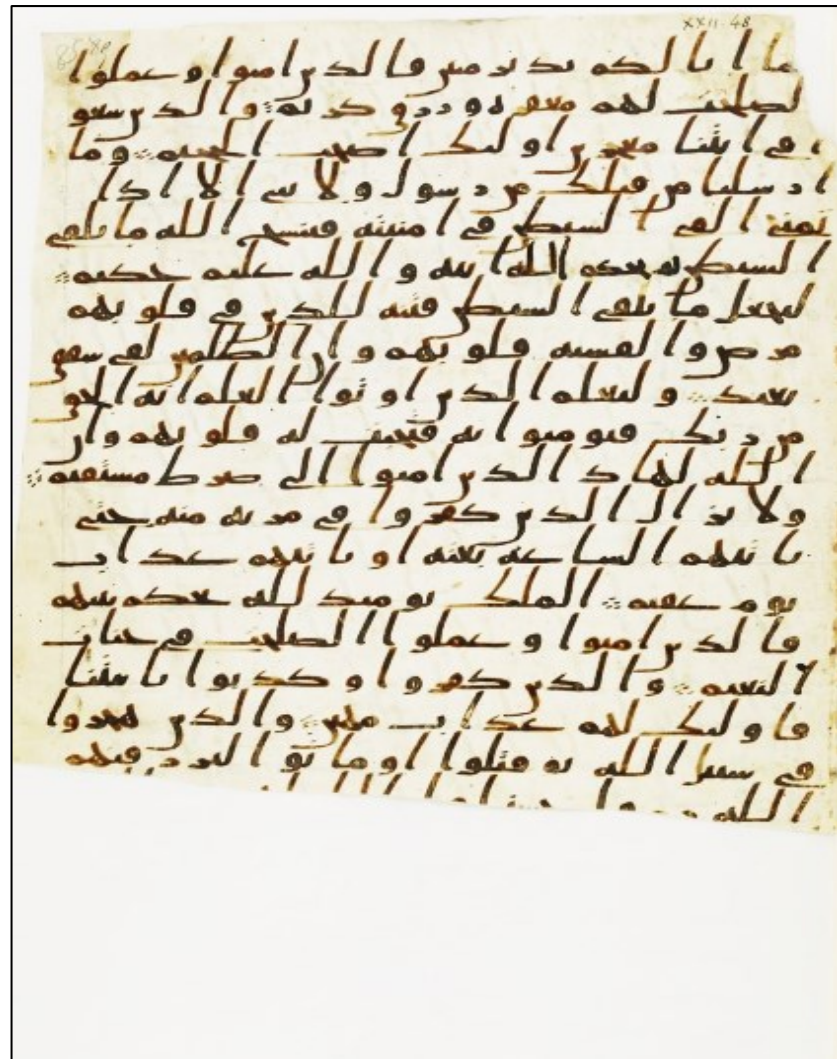 XXII. 48
ما انا لكم نذير مبين فالذين امنوا وعملوا
لصلحت لهم مغفرة ورزق كريم والذين سعو
ا في ايتنا معجزين اوليك اصحب الجحيم وما
ارسلنا من قبلك من رسول ولا نبي الا اذا
تمنى القى الشيطن في امنيته فينسخ الله ما يلقي
الشيطن ثم يحكم الله ايته والله عليم حكيم
ليجعل ما يلقي الشيطن فتنة للذين في قلوبهم
مرض والقسية قلوبهم وان الظلمين لفي شقق
بعيد وليعلم الذين اوتوا العلم انه الحق
من ربك فيومنوا به فتخبت له قلوبهم وان
الله لهاد الذين امنوا الى صرط مستقيم
ولا يزال الذين كفروا في مرية منه حتى
تاتيهم الساعة بغتة او ياتيهم عذاب
يوم عقيم الملك يوميذ لله يحكم بينهم
فالذين امنوا وعملوا الصلحت في جنات
النعيم والذين كفروا وكذبوا بايتنا
فاوليك لهم عذاب مهين والذين هجروا
في سبيل الله ثم قتلوا او ماتوا ليرزقنهم
الله